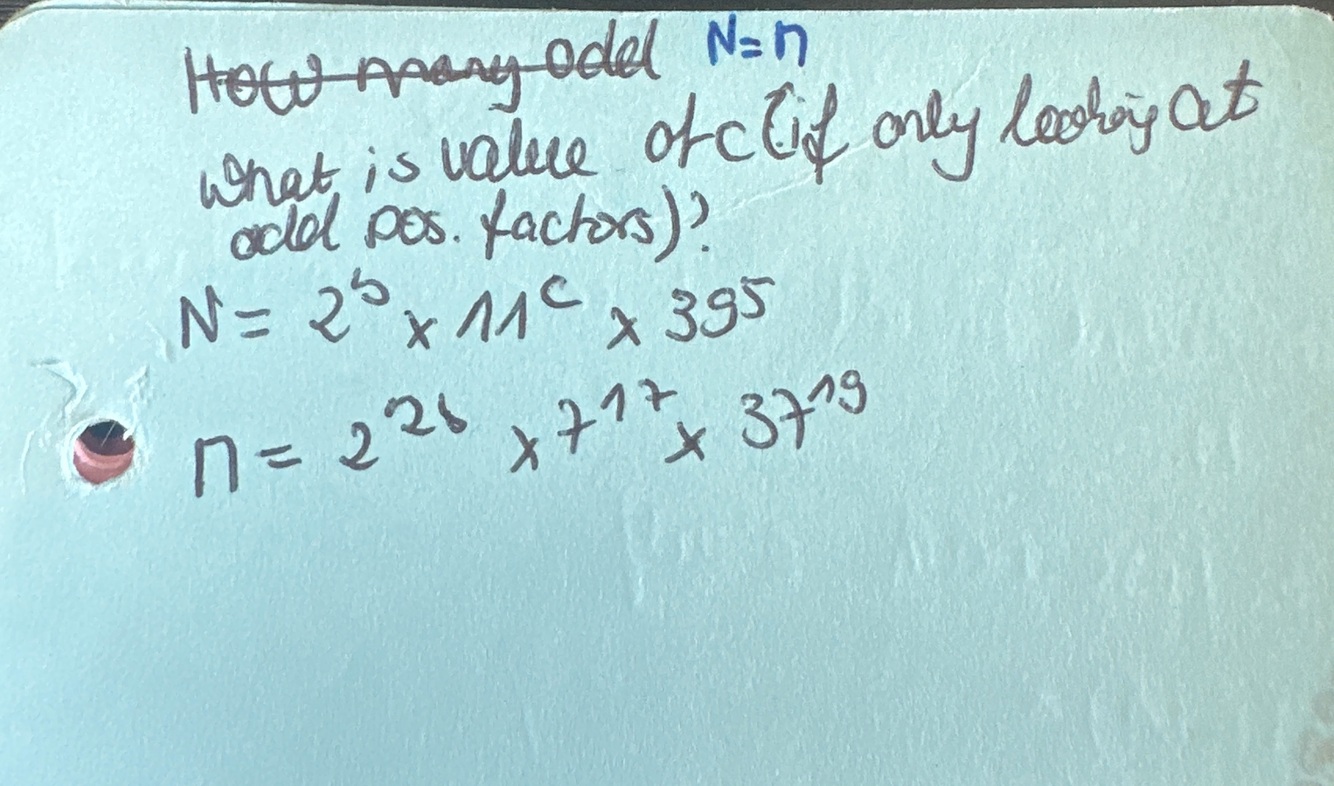 How many odd N=n
What is value of c (if only looking at
odd pos. factors)?
N = 2⁵ x 11ᶜ x 39⁵
n = 2²⁶ x 7¹⁷ x 37¹⁹